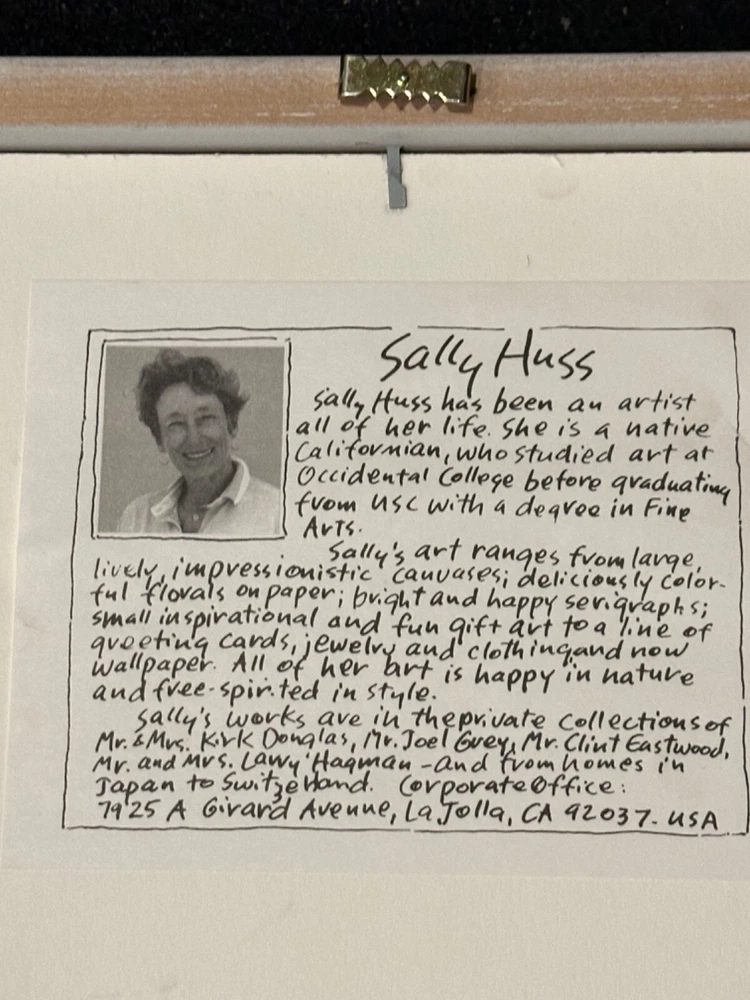 Sally Huss
Sally Huss has been an artist
all of her life. She is a native
Californian, who studied art at
Occidental College before graduating
from USC with a degree in Fine
Arts.
Sally's art ranges from large,
lively, impressionistic canvases; deliciously color-
ful florals on paper; bright and happy serigraphs;
small inspirational and fun gift art to a line of
greeting cards, jewelry and clothing and now
wallpaper. All of her art is happy in nature
and free-spirited in style.
Sally's works are in the private collections of
Mr. & Mrs. Kirk Douglas, Mr. Joel Grey, Mr. Clint Eastwood,
Mr. and Mrs. Larry Hagman - and from homes in
Japan to Switzerland. Corporate Office:
7925 A Girard Avenue, La Jolla, CA 92037. USA